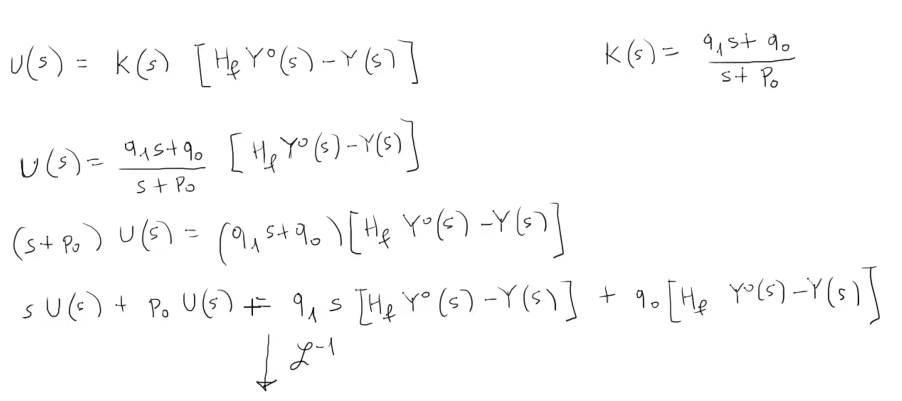 U(s) = K(s) [H_f Y°(s) - Y(s)]
K(s) = \frac{q_1 s + q_0}{s + p_0}
U(s) = \frac{q_1 s + q_0}{s + p_0} [H_f Y°(s) - Y(s)]
(s + p_0) U(s) = (q_1 s + q_0) [H_f Y°(s) - Y(s)]
s U(s) + p_0 U(s) = q_1 s [H_f Y°(s) - Y(s)] + q_0 [H_f Y°(s) - Y(s)]
↓ ℒ^{-1}